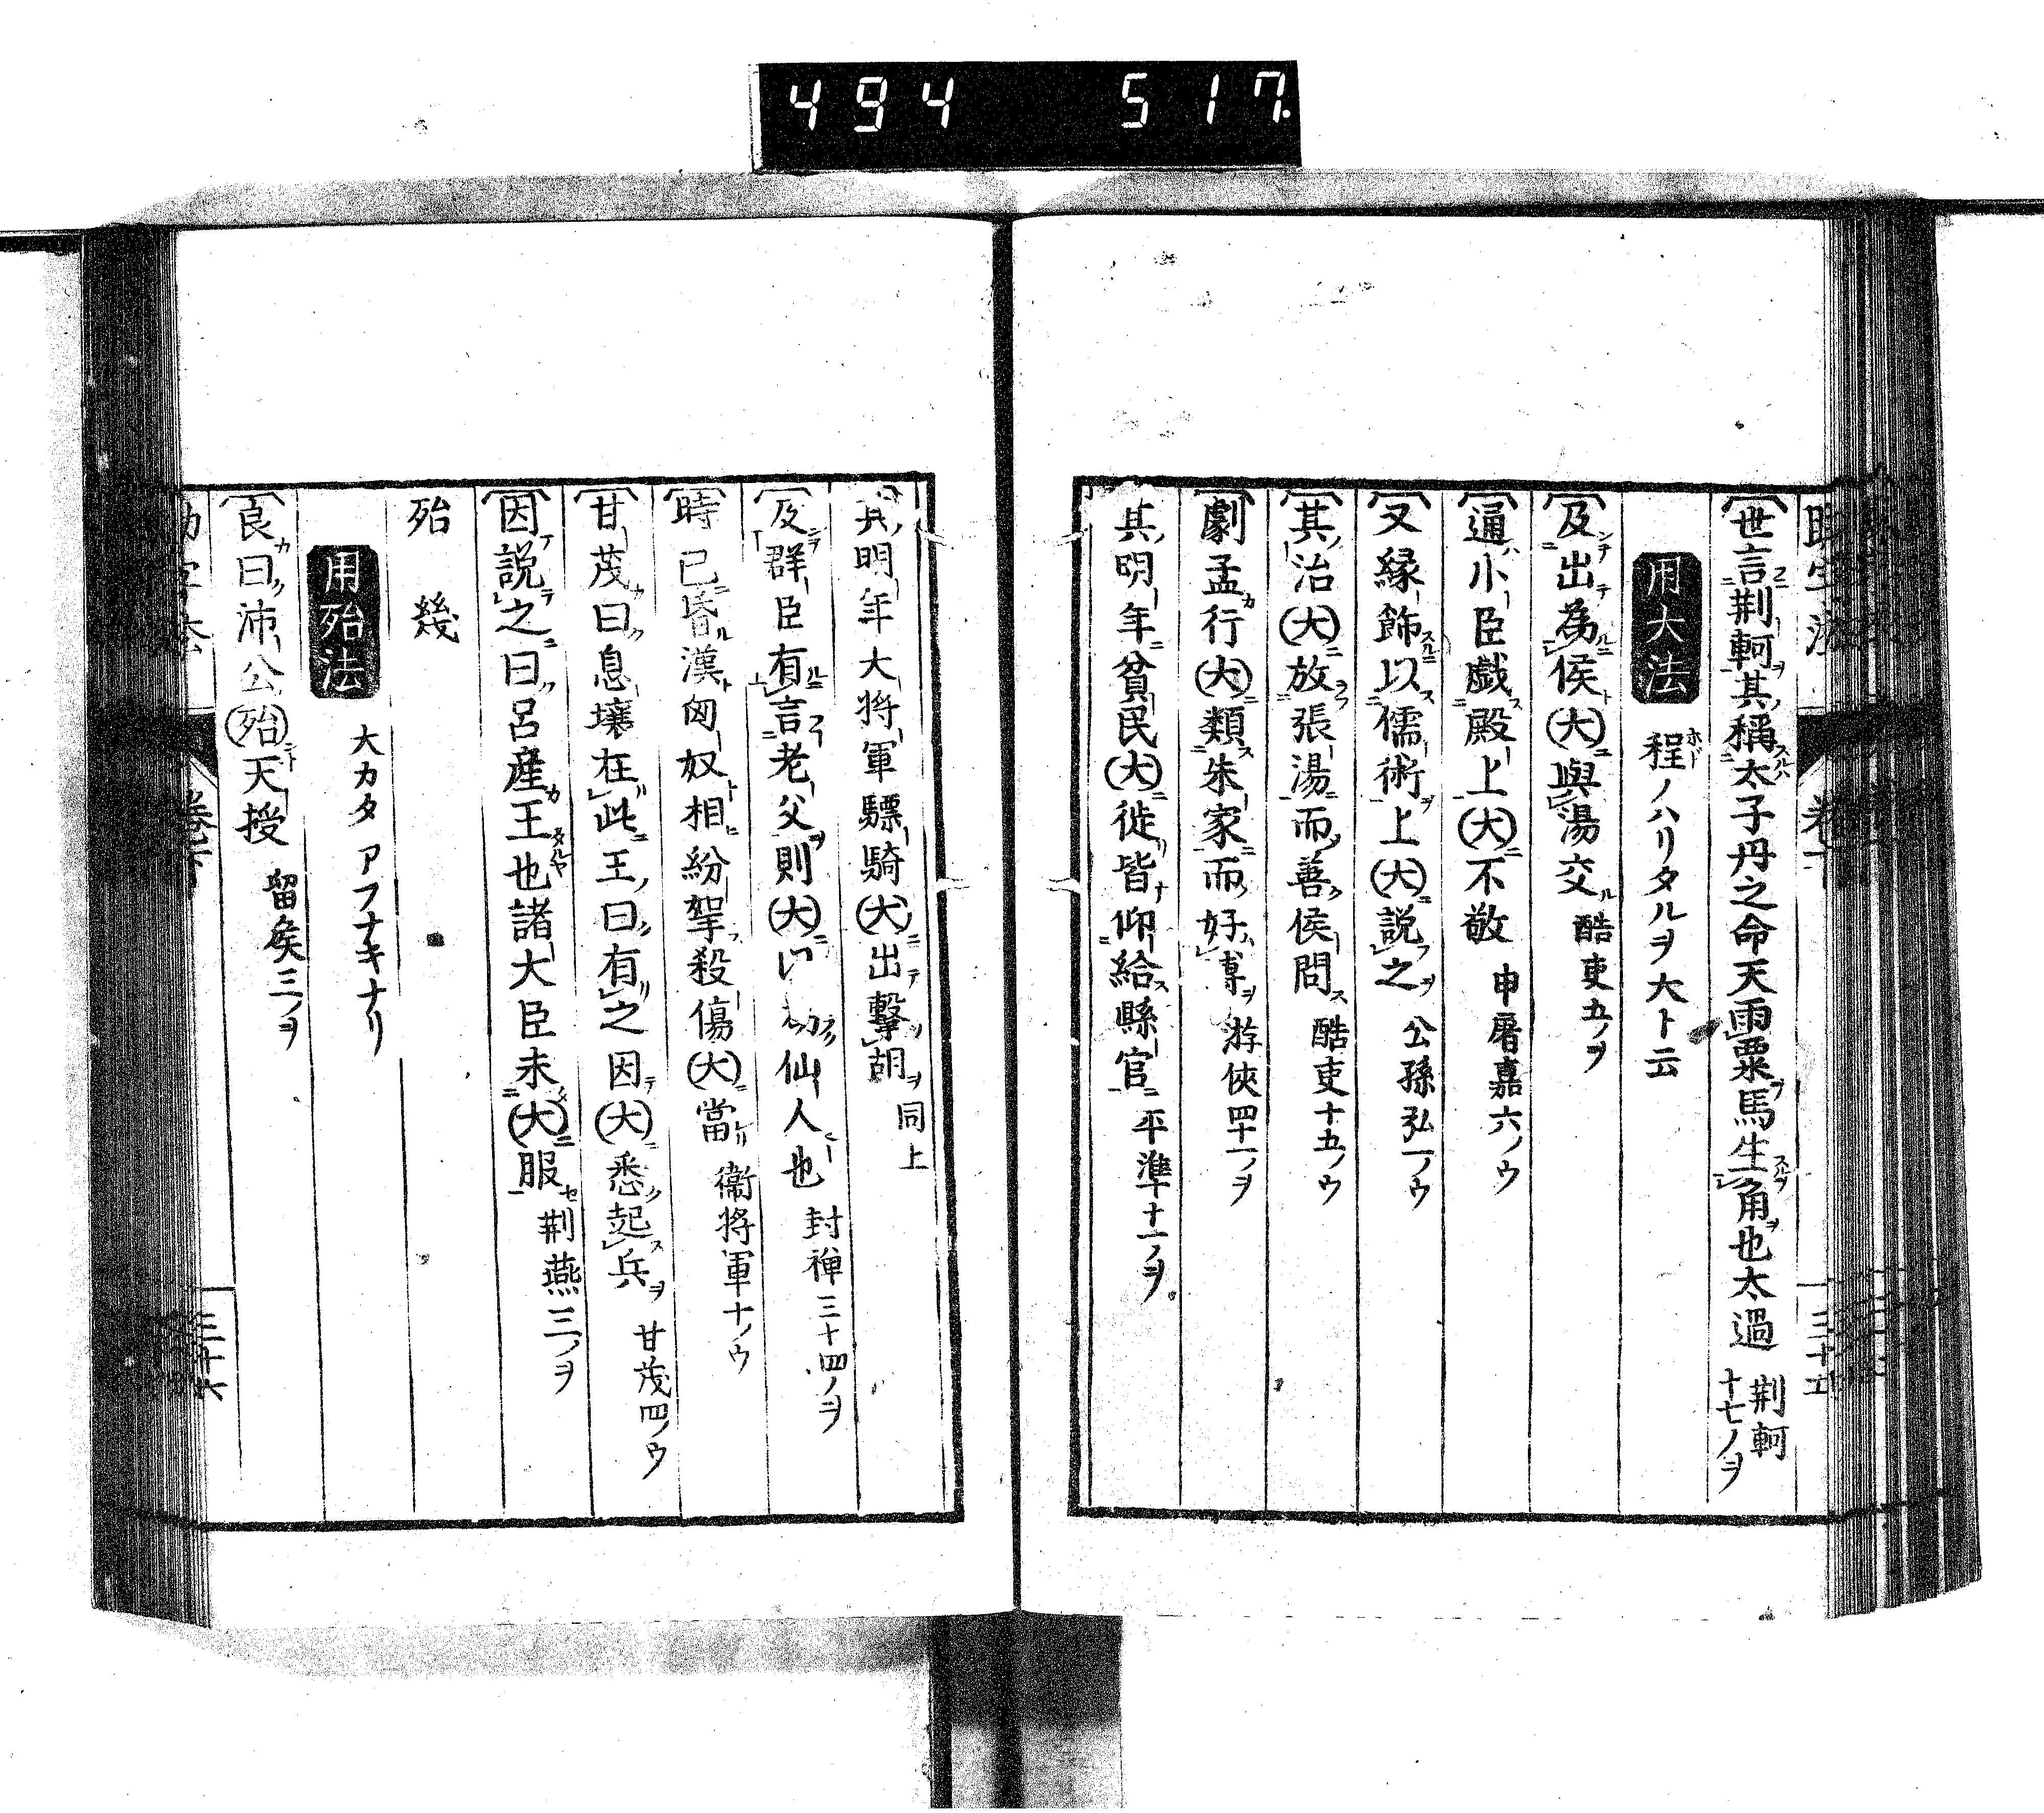 494 517.
世言荆軻其稱太子丹之命天雨粟馬生角也太過 荆軻十七ノヲ
用大法 程ノハリタルヲ大ト云
及出為侯大與湯交 酷吏五ノヲ
通小臣戯殿上大不敬 申屠嘉六ノウ
又緣飾以儒術上大説之 公孫弘一ノウ
其治大放張湯而善侯問 酷吏十五ノウ
劇孟行大類朱家而好博 游俠四十一ノヲ
其明年貧民大徙皆仰給縣官 平準十一ノヲ
其明年大將軍驃騎大出撃胡 同上
及群臣有言老父則大以為仙人也 封禅三十四ノヲ
時已昏漢匈奴相紛挐殺傷大當 衞將軍十ノウ
甘茂曰息壤在此王曰有之因大悉起兵 甘茂四ノウ
因説之曰呂産王也諸大臣未大服 荆燕三ノヲ
殆 幾
用殆法 大カタ アフナキナリ
良曰沛公殆天授 留侯三ノヲ
三十六